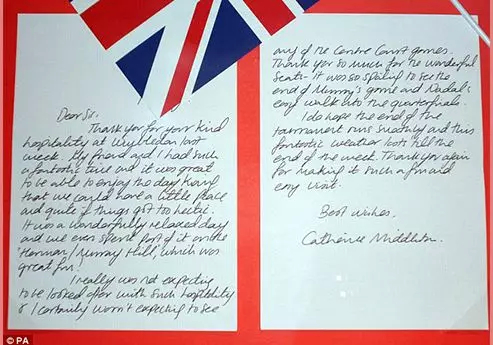 Dear Sir,
Thank you for your kind
hospitality at Wimbledon last
week. My friend and I had such
a fantastic time and it was great
to be able to enjoy the day knowing
that we could have a little peace
and quiet if things got too hectic.
It was a wonderfully relaxed day
and we even spent part of it on the
'Henman/Murray Hill', which was
great fun!
I really was not expecting
to be looked after with such hospitality
& I certainly wasn't expecting to see
any of the Centre Court games.
Thank you so much for the wonderful
seats - it was so spoiling to see the
end of Murray's game and Nadal's
easy walk into the quarterfinals.
I do hope the end of the
tournament runs smoothly and this
fantastic weather lasts till the
end of the week. Thank you again
for making it such a fun and
easy visit.
Best wishes,
Catherine Middleton.
© PA